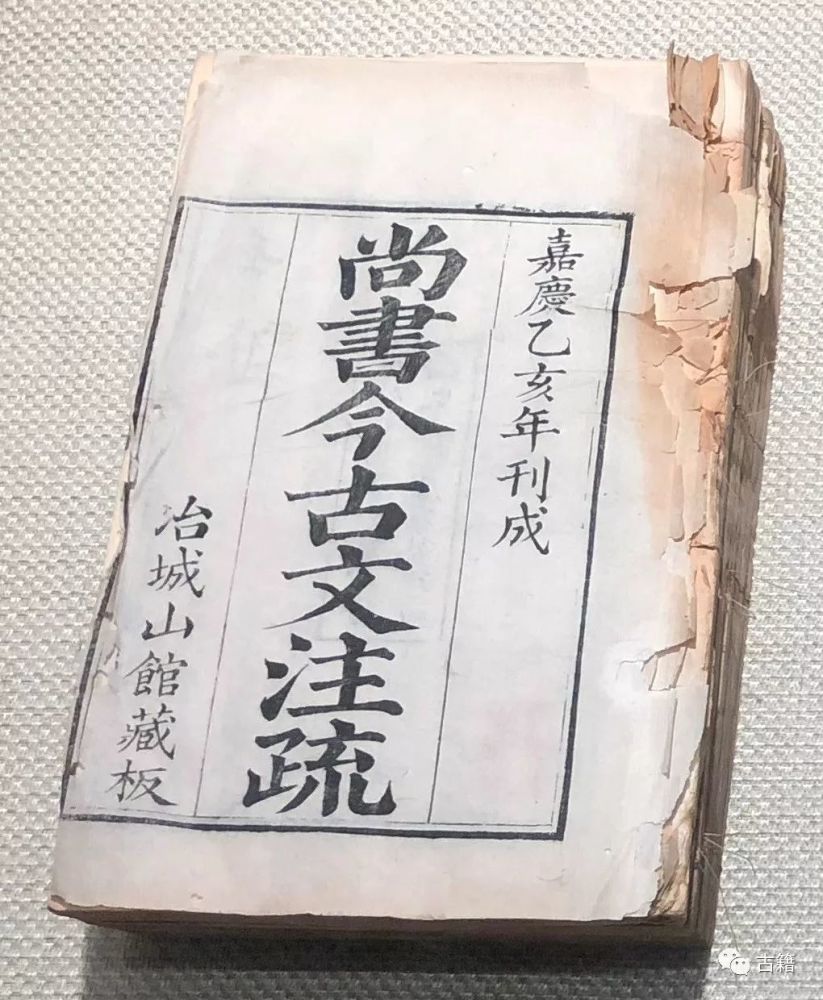 嘉慶乙亥年刊成
尚書今古文注疏
冶城山館藏板
古籍